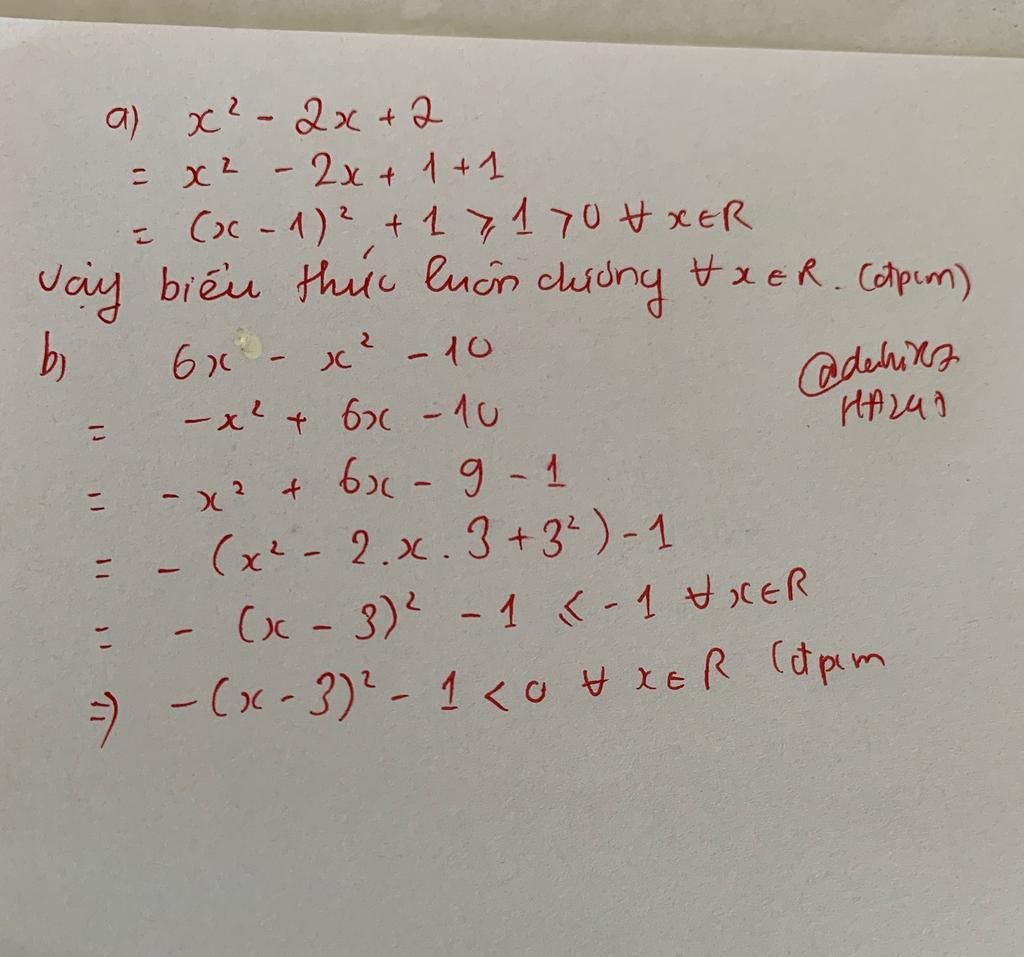 a) x² - 2x + 2
= x² - 2x + 1 + 1
= (x - 1)² + 1 ⩾ 1 > 0 ∀ x ∈ R
Vậy biểu thức luôn dương ∀ x ∈ R. (đpcm)
b) 6x - x² - 10
= -x² + 6x - 10
= -x² + 6x - 9 - 1
= - (x² - 2.x.3 + 3²) - 1
= - (x - 3)² - 1 ⩽ -1 ∀ x ∈ R
⇒ -(x - 3)² - 1 < 0 ∀ x ∈ R (đpcm